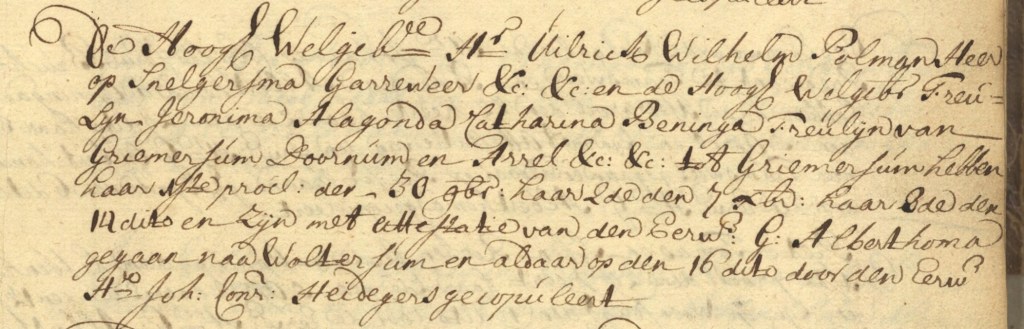 De Hoogh Welgebre Hr Uilrich Wilhelm Polman Heer
op Snelgersma Garreweer &c: &c: en de Hoogh Welgebr Freu=
Lyn Jeronima Alagonda Catharina Beninga Freulyn van
Griemersum Doornum en Arrel &c: &c: tot Griemersum hebben
haar 1ste procl: den 30 9br: haar 2de den 7 xbr: haar 3de den
14 dito en zyn met attestatie van den Eerw: G: Alberthoma
gegaan naa Woltersum en aldaar op den 16 dito door den Eerw
Hr Joh: Conr: Heidegers gecopuleert